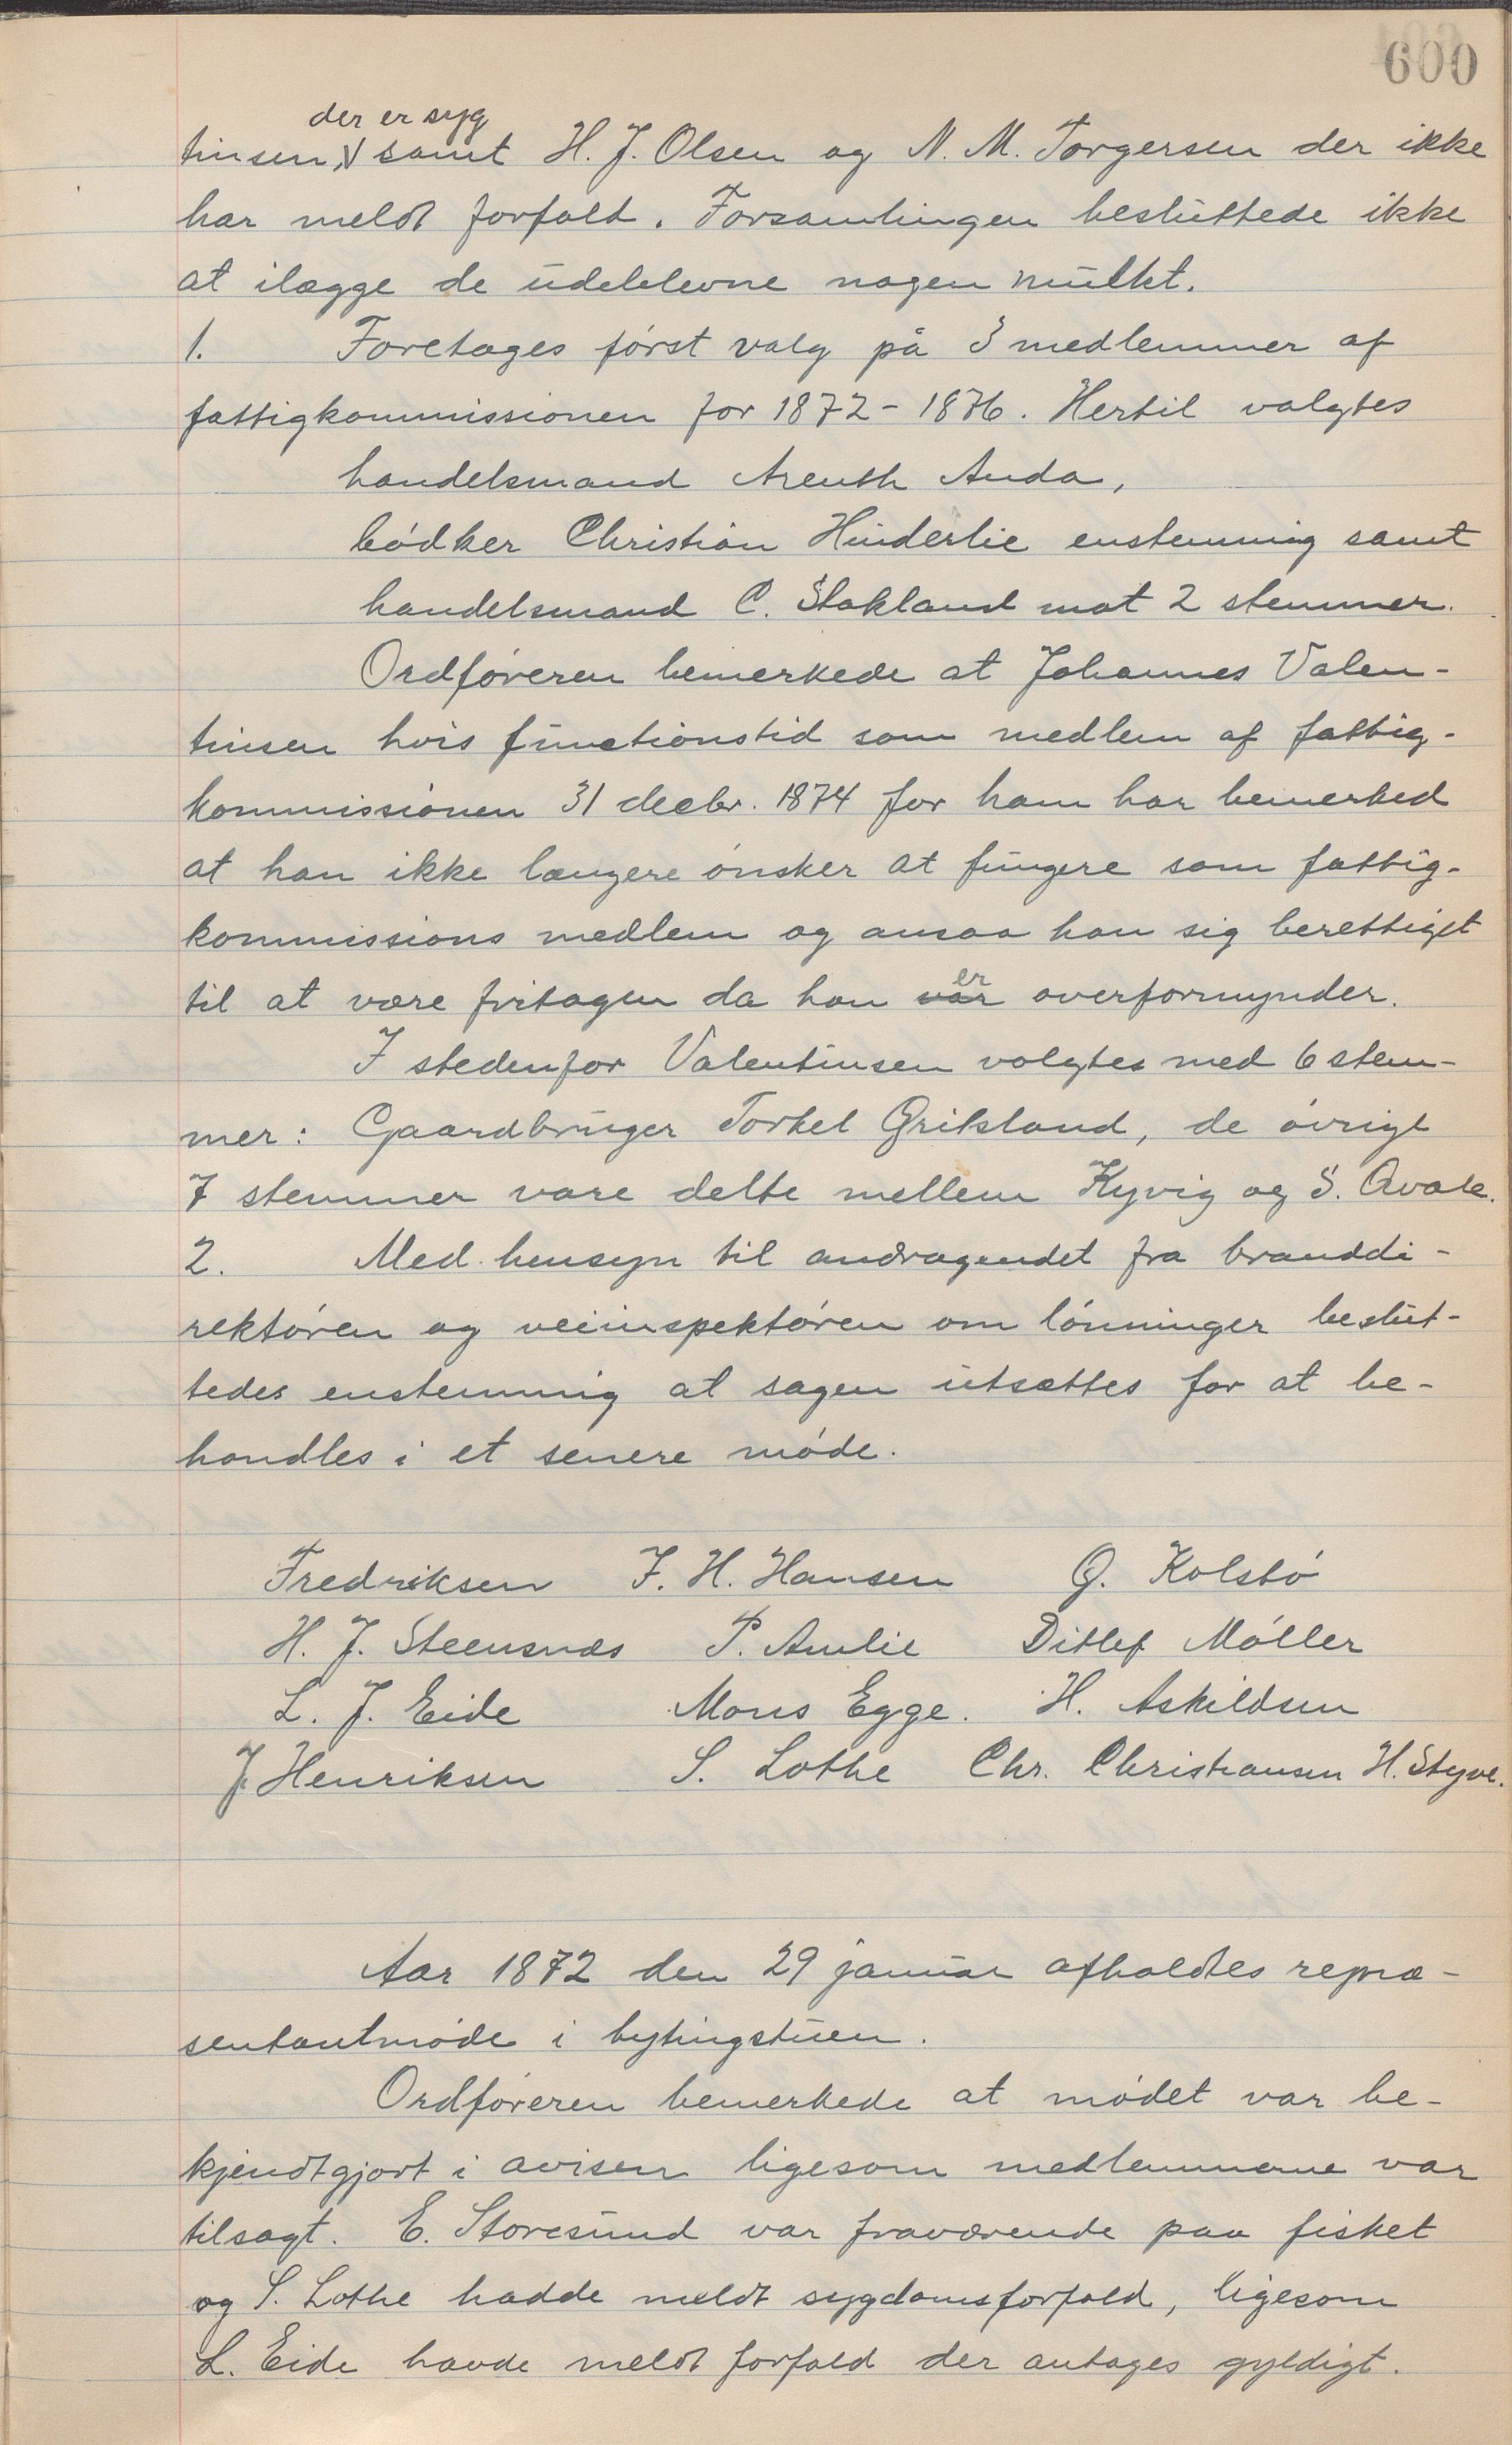 600
der er syg
tinsen, samt H. J. Olsen og N. M. Torgersen der ikke
har meldt forfald. Forsamlingen besluttede ikke
at ilægge de udeblevne nogen mulkt.
1. Foretages først valg på 3 medlemmer af
fattigkommissionen for 1872-1876. Hertil valgtes
handelsmand Arenth Anda,
bødker Christian Hinderlie enstemmig samt
handelsmand C. Stakland mot 2 stemmer.
Ordføreren bemerkede at Johannes Valen-
tinsen hvis functionstid som medlem af fattig-
kommissionen 31 decbr. 1874 for ham har bemerked
at han ikke længere ønsker at fungere som fattig-
kommissions medlem og ansaa han sig berettiget
til at være fritagen da han var er overformynder.
I stedenfor Valentinsen valgtes med 6 stem-
mer: Gaardbruger Torkel Grikstand, de øvrige
7 stemmer vare delte mellem Kyvig og S. Qvale.
2. Med hensyn til andragendet fra branddi-
rektøren og veiinspektøren om lønninger beslut-
tedes enstemmig at sagen utsættes for at be-
handles i et senere møde.
Fredriksen J. H. Hansen G. Kolstø
H. J. Steensnæs P. Amlie Ditlef Møller
L. J. Eide Mons Egge. H. Askildsen
J. Henriksen S. Lothe Chr. Christiansen H. Styve.
Aar 1872 den 29 januar afholdtes repræ-
sentantmøde i bytingstuen.
Ordføreren bemerkede at mødet var be-
kjendtgjort i avisen ligesom medlemmerne var
tilsagt. E. Storesund var fraværende paa fisket
og S. Lothe hadde meldt sygdomsforfald, ligesom
L. Eide havde meldt forfald der antages gyldigt.